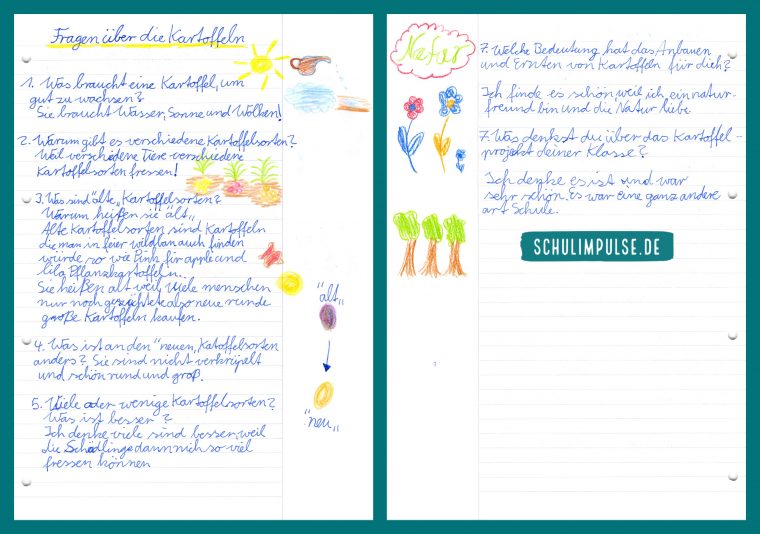 Fragen über die Kartoffeln
1. Was braucht eine Kartoffel, um
gut zu wachsen?
Sie braucht Wasser, Sonne und Wolken!
2. Warum gibt es verschiedene Kartoffelsorten?
Weil verschiedene Tiere verschiedene
Kartoffelsorten fressen!
3. Was sind "alte„ Kartoffelsorten?
Warum heißen sie alt„
Alte Kartoffelsorten sind Kartoffeln
die man in feier wildban auch finden
würde so wie Pink für apple und
lila Pflanzkartoffeln.
Sie heißen alt weil viele menschen
nur noch gezüchtete also neue runde
große Kartoffeln kaufen.
"alt„
4. Was ist an den "neuen„ Katoffelsorten
anders? Sie sind nicht verkrüpelt
und schön rund und groß.
5. Viele oder wenige Kartoffelsorten?
Was ist besser?
Ich denke viele sind besser, weil
die Schädlinge dann nich so viel
fressen können
"neu„
Natur
7. Welche Bedeutung hat das Anbauen
und Ernten von Kartoffeln für dich?
Ich finde es schön, weil ich ein natur-
freund bin und die Natur liebe.
7. Was denkst du über das Kartoffel-
projekt deiner Klasse?
Ich denke es ist und war
sehr schön. es war eine ganz andere
art Schule.
SCHULIMPULSE.DE